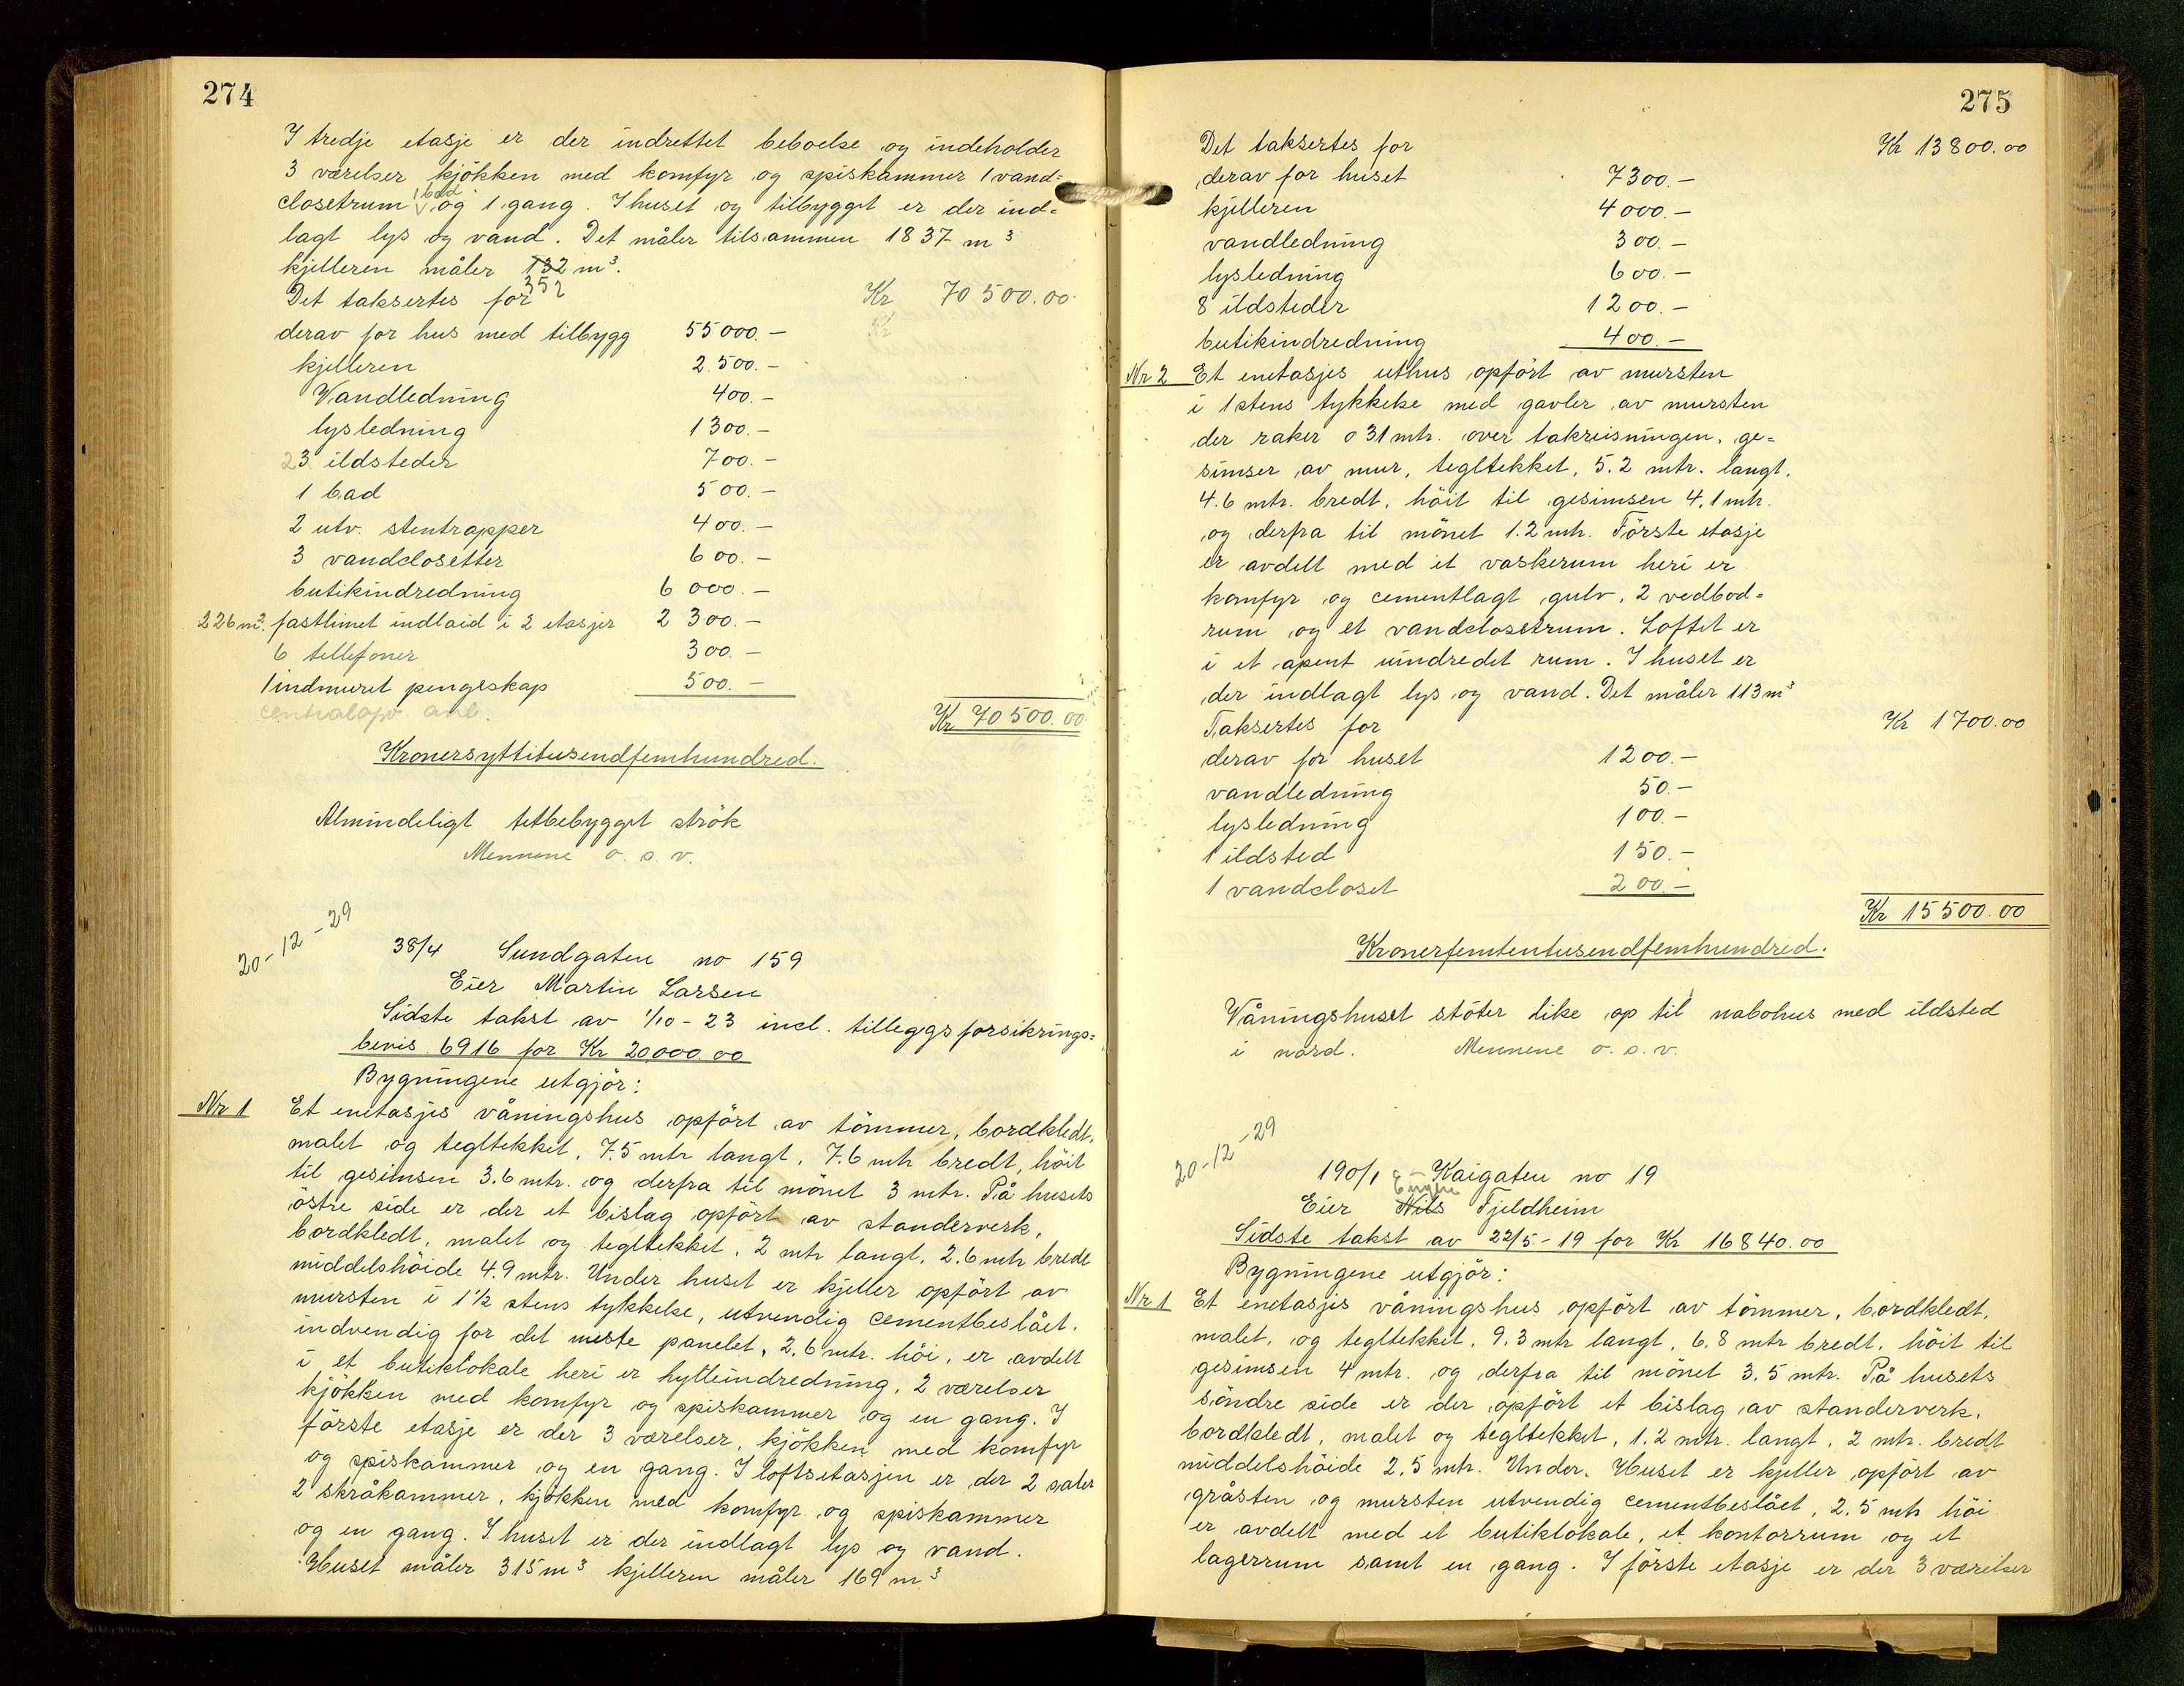 274
I tredje etasje er der indrettet beboelse og indeholder
3 værelser kjökken med komfyr og spiskammer 1 vand=
closetrum 1 bad og 1 gang. I huset og tilbygget er der ind-
lagt lys og vand. Det måler tilsammen 1837 m³
kjelleren måler 132 m³.
352
Det taksertes for Kr 70500.00
derav for hus med tilbygg 55000.- Kr
kjelleren 2500.-
Vandledning 400.-
lysledning 1300.-
23 ildsteder 700.-
1 bad 500.-
2 utv. stentrapper 400.-
3 vandclosetter 600.-
butikindredning 6000.-
226 m². fastlimet indlaid i 2 etasjer 2300.-
6 tellefoner 300.-
1 indmuret pengeskap 500.-
centralopv. anl.
Kr 70500.00
Kronersyttitusendfemhundred.
Almindeligt tetbebygget strök
Mennene o. s. v.
20-12-29
38/4 Sundgaten no 159
Eier Martin Larsen
Sidste takst av 1/10-23 incl. tilleggsforsikrings=
bevis 6916 for Kr 20000.00
Bygningene utgjör:
Nr 1 Et enetasjes våningshus opfört av tömmer, bordkledt,
malet og tegltekket, 7.5 mtr langt, 7.6 mtr bredt, höit
til gesimsen 3.6 mtr. og derfra til mönet 3 mtr. På husets
östre side er der et bislag opfört av standerverk,
bordkledt, malet og tegltekket, 2 mtr langt, 2.6 mtr bredt
middelshöide 4.9 mtr. Under huset er kjeller opfört av
mursten i 1½ stens tykkelse, utvendig cementbeslået,
indvendig for det meste panelet, 2.6 mtr. höi, er avdelt
i et butiklokale heri er hylleindredning, 2 værelser
kjökken med komfyr og spiskammer og en gang. I
förste etasje er der 3 værelser, kjökken med komfyr
og spiskammer og en gang. I loftsetasjen er der 2 saler
2 skråkammer, kjökken med komfyr og spiskammer
og en gang. I huset er der indlagt lys og vand.
Huset måler 315 m³ kjelleren måler 169 m³
275
Det taksertes for Kr 13800.00
derav for huset 7300.-
kjelleren 4000.-
vandledning 300.-
lysledning 600.-
8 ildsteder 1200.-
butikindredning 400.-
Nr 2 Et enetasjes uthus opfört av mursten
i 1 stens tykkelse med gavler av mursten
der raker 0 31 mtr. over takreisningen, ge=
simser av mur, tegltekket, 5.2 mtr. langt,
4.6 mtr. bredt, höit til gesimsen 4,1 mtr.
og derfra til mönet 1.2 mtr. Förste etasje
er avdelt med et vaskerum heri er
komfyr og cementlagt gulv, 2 vedbod=
rum og et vandclosetrum. Loftet er
i et åpent uindredet rum. I huset er
der indlagt lys og vand. Det måler 113 m³
Taksertes for Kr 1700.00
derav for huset 1200.-
vandledning 50.-
lysledning 100.-
1 ildsted 150.-
1 vandcloset 200.-
Kr 15500.00
Kronerfemtentusendfemhundred.
Våningshuset stöter like op til nabohus med ildsted
i nord. Mennene o. s. v.
20-12-29
190/1 Kaigaten no 19
Eier Nils Fjeldheim
Sidste takst av 22/5.-19 for Kr 16840.00
Bygningene utgjör:
Nr 1 Et enetasjes våningshus opfört av tömmer, bordkledt,
malet, og tegltekket, 9.3 mtr langt, 6,8 mtr bredt, höit til
gesimsen 4 mtr. og derfra til mönet 3.5 mtr. På husets
söndre side er der opfört et bislag av standerverk,
bordkledt, malet og tegltekket, 1.2 mtr. langt, 2 mtr. bredt
middelshöide 2.5 mtr. Under. Huset er kjeller opfört av
gråsten og mursten utvendig cementbeslået, 2.5 mtr höi
er avdelt med et butiklokale, et kontorrum og et
lagerrum samt en gang. I förste etasje er der 3 værelser